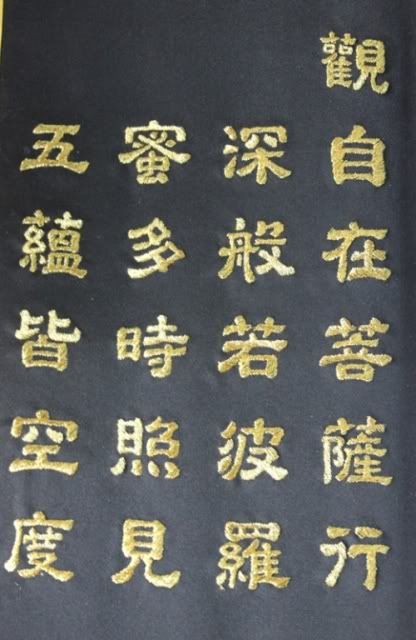 觀自在菩薩行
深般若波羅
蜜多時照見
五蘊皆空度